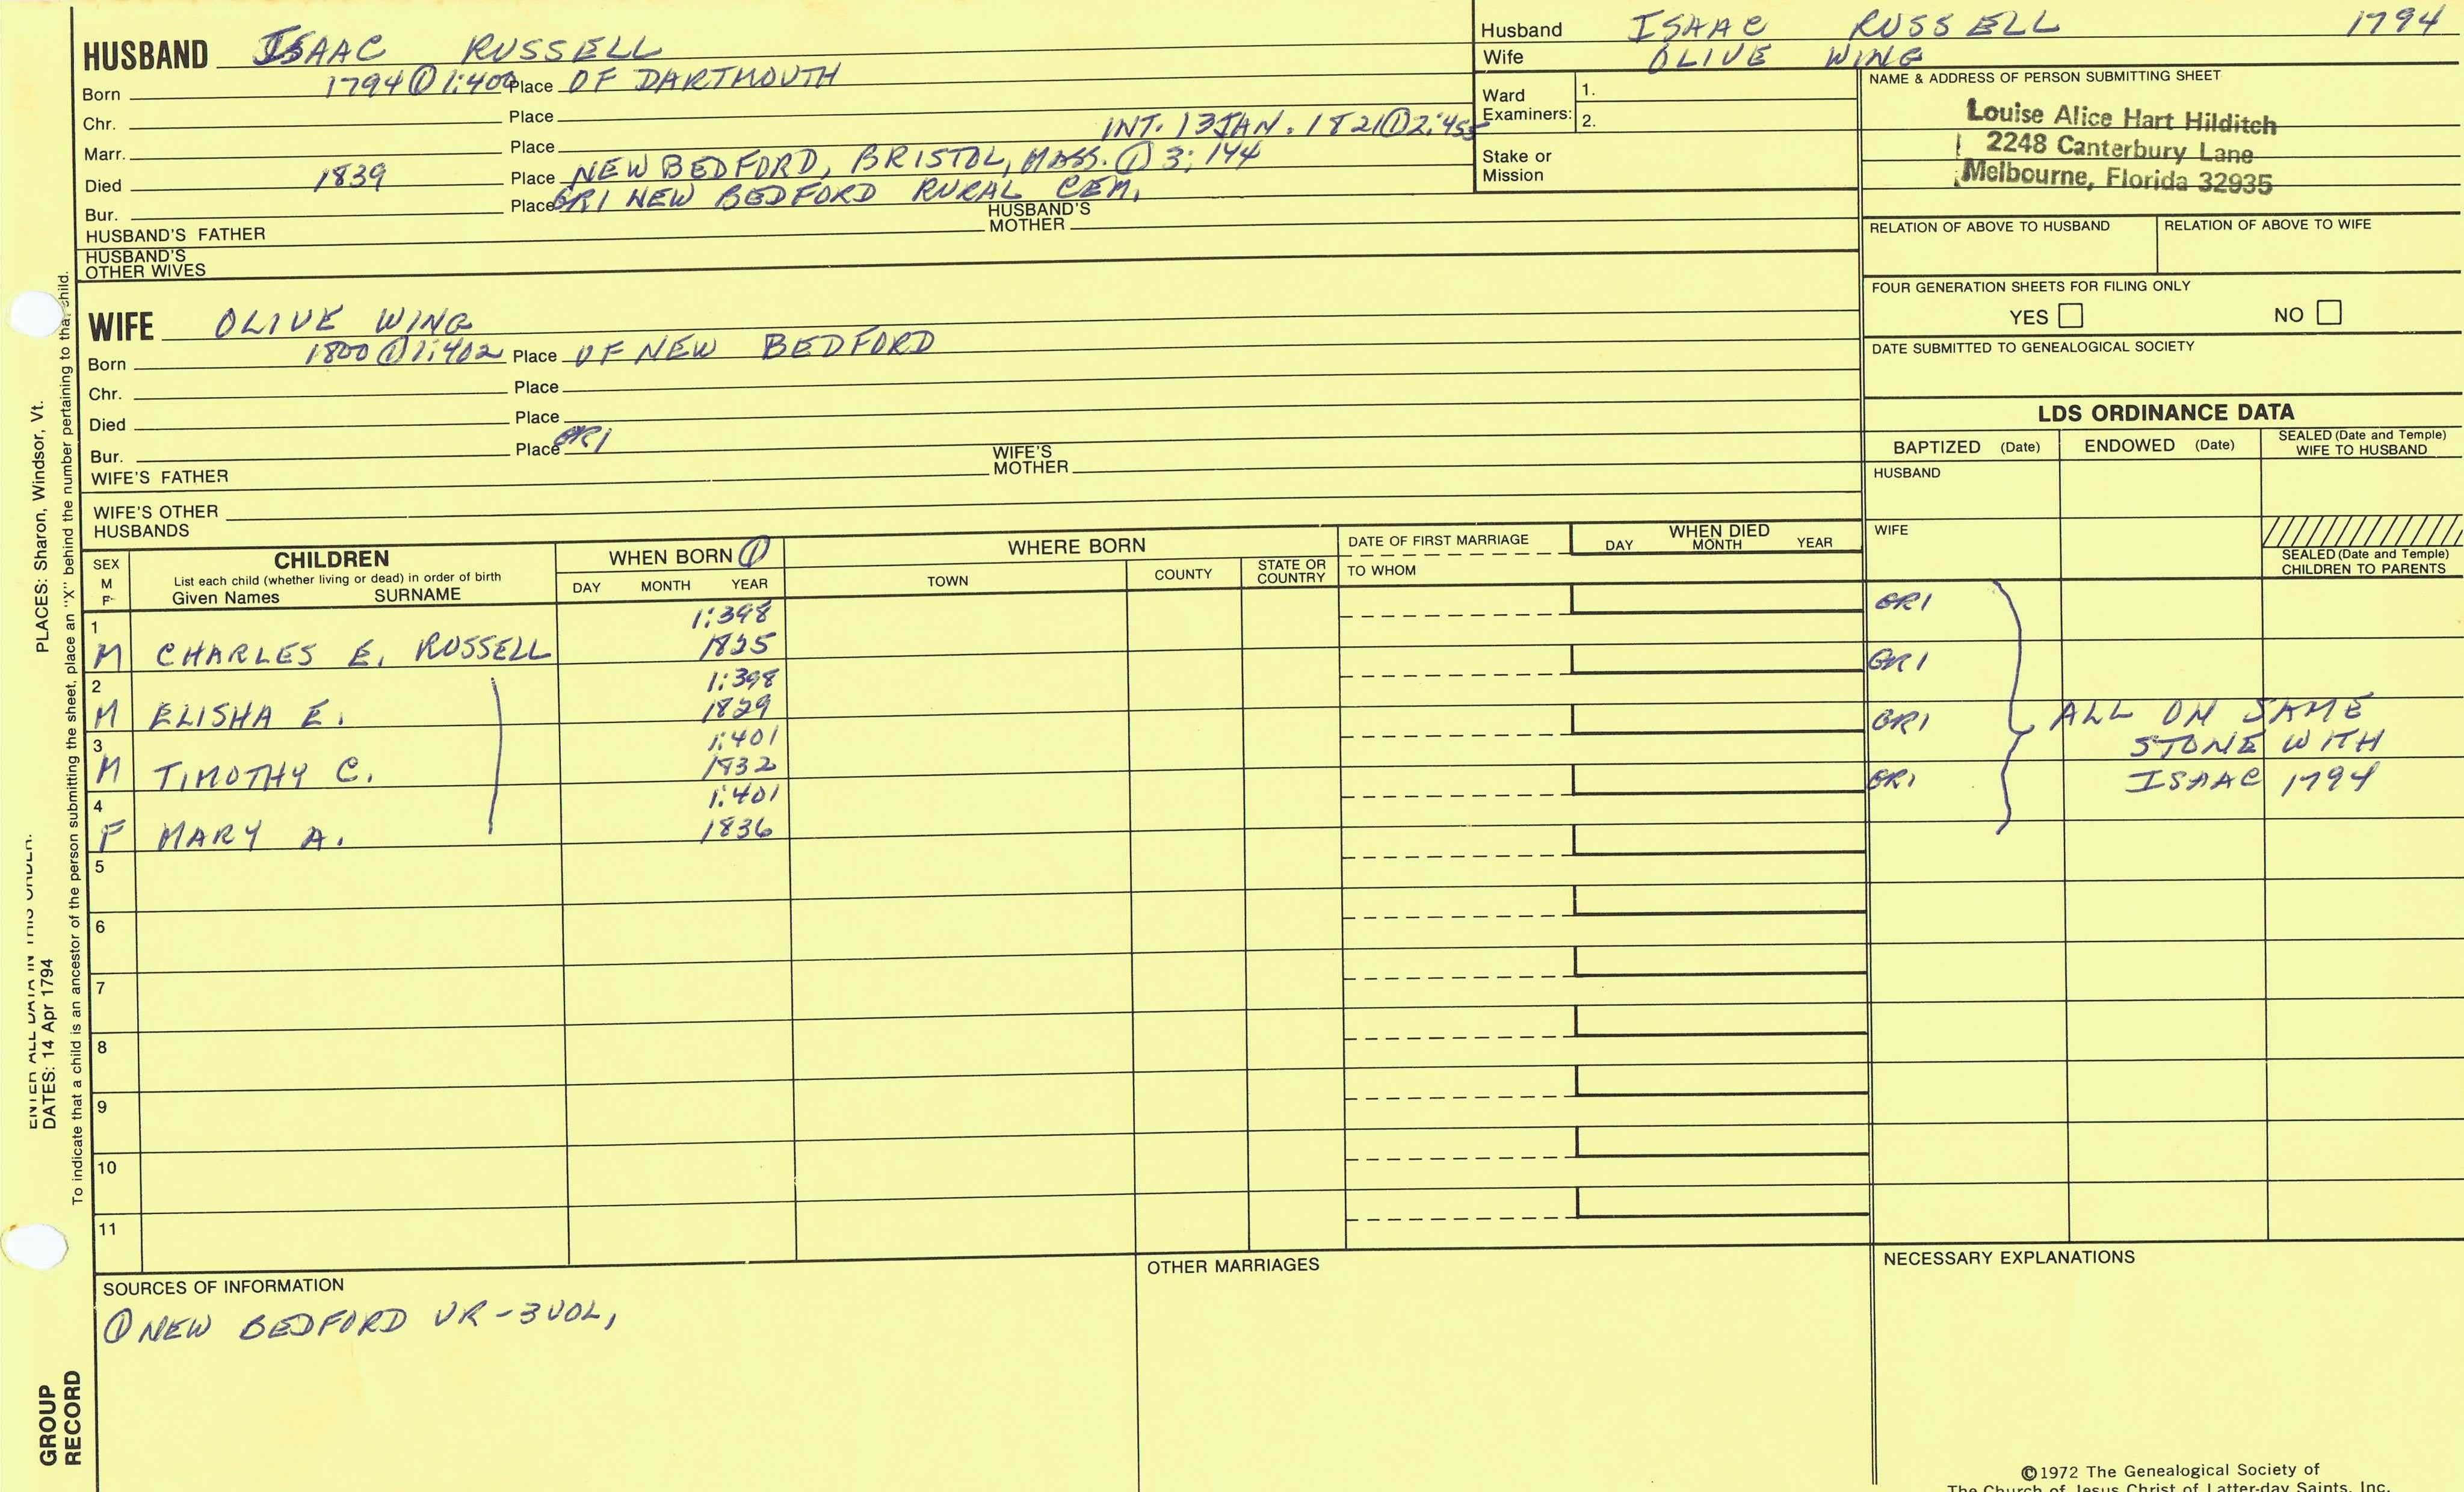 HUSBAND ISAAC RUSSELL
Born 1794 ① 1:400 Place OF DARTMOUTH
Chr. Place
Marr. Place INT. 13 JAN. 1821 ① 2:455
Died 1839 Place NEW BEDFORD, BRISTOL, MASS. ① 3; 144
Bur. Place GR1 NEW BEDFORD RURAL CEM.
HUSBAND'S FATHER HUSBAND'S MOTHER
HUSBAND'S OTHER WIVES
Husband ISAAC RUSSELL 1794
Wife OLIVE WING
Ward Examiners: 1.
2.
Stake or Mission
NAME & ADDRESS OF PERSON SUBMITTING SHEET
Louise Alice Hart Hilditch
2248 Canterbury Lane
Melbourne, Florida 32935
RELATION OF ABOVE TO HUSBAND RELATION OF ABOVE TO WIFE
FOUR GENERATION SHEETS FOR FILING ONLY
YES NO
DATE SUBMITTED TO GENEALOGICAL SOCIETY
WIFE OLIVE WING
Born 1800 ① 1:402 Place OF NEW BEDFORD
Chr. Place
Died Place
Bur. Place GR1
WIFE'S FATHER WIFE'S MOTHER
WIFE'S OTHER HUSBANDS
LDS ORDINANCE DATA
BAPTIZED (Date) ENDOWED (Date) SEALED (Date and Temple) WIFE TO HUSBAND
HUSBAND
WIFE
SEALED (Date and Temple) CHILDREN TO PARENTS
SEX M F
CHILDREN
List each child (whether living or dead) in order of birth
Given Names SURNAME
WHEN BORN ①
DAY MONTH YEAR
WHERE BORN
TOWN COUNTY STATE OR COUNTRY
DATE OF FIRST MARRIAGE
TO WHOM
WHEN DIED
DAY MONTH YEAR
1 1:398 GR1
M CHARLES E. RUSSELL 1825
2 1:398 GR1
M ELISHA E. 1829
3 1:401 GR1
M TIMOTHY C. 1832
4 1:401 GR1
F MARY A. 1836
ALL ON SAME
STONE WITH
ISAAC 1794
5
6
7
8
9
10
11
SOURCES OF INFORMATION
① NEW BEDFORD VR - 3 VOL,
OTHER MARRIAGES
NECESSARY EXPLANATIONS
©1972 The Genealogical Society of
The Church of Jesus Christ of Latter-day Saints, Inc.
PLACES: Sharon, Windsor, Vt.
ENTER ALL DATA IN THIS ORDER:
DATES: 14 Apr 1794
To indicate that a child is an ancestor of the person submitting the sheet, place an "X" behind the number pertaining to that child.
GROUP
RECORD